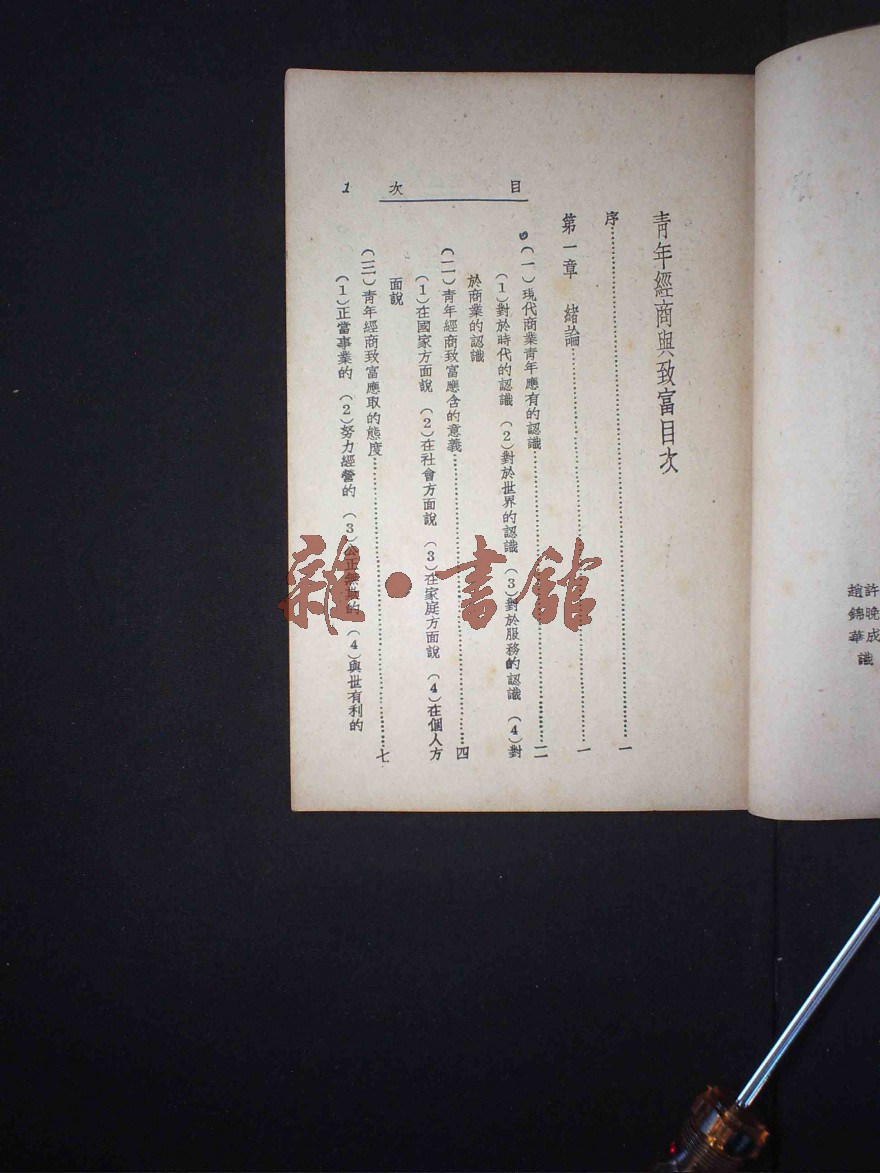 許晚成
趙錦華 識
青年經商與致富目次
序……一
第一章 緒論……一
(一)現代商業青年應有的認識……二
(1)對於時代的認識 (2)對於世界的認識 (3)對於服務的認識 (4)對
於商業的認識
(二)青年經商致富應含的意義……四
(1)在國家方面說 (2)在社會方面說 (3)在家庭方面說 (4)在個人方
面說
(三)青年經商致富應取的態度……七
(1)正當事業的 (2)努力經營的 (3)公正無欺的 (4)與世有利的
目次
1
雜·書館